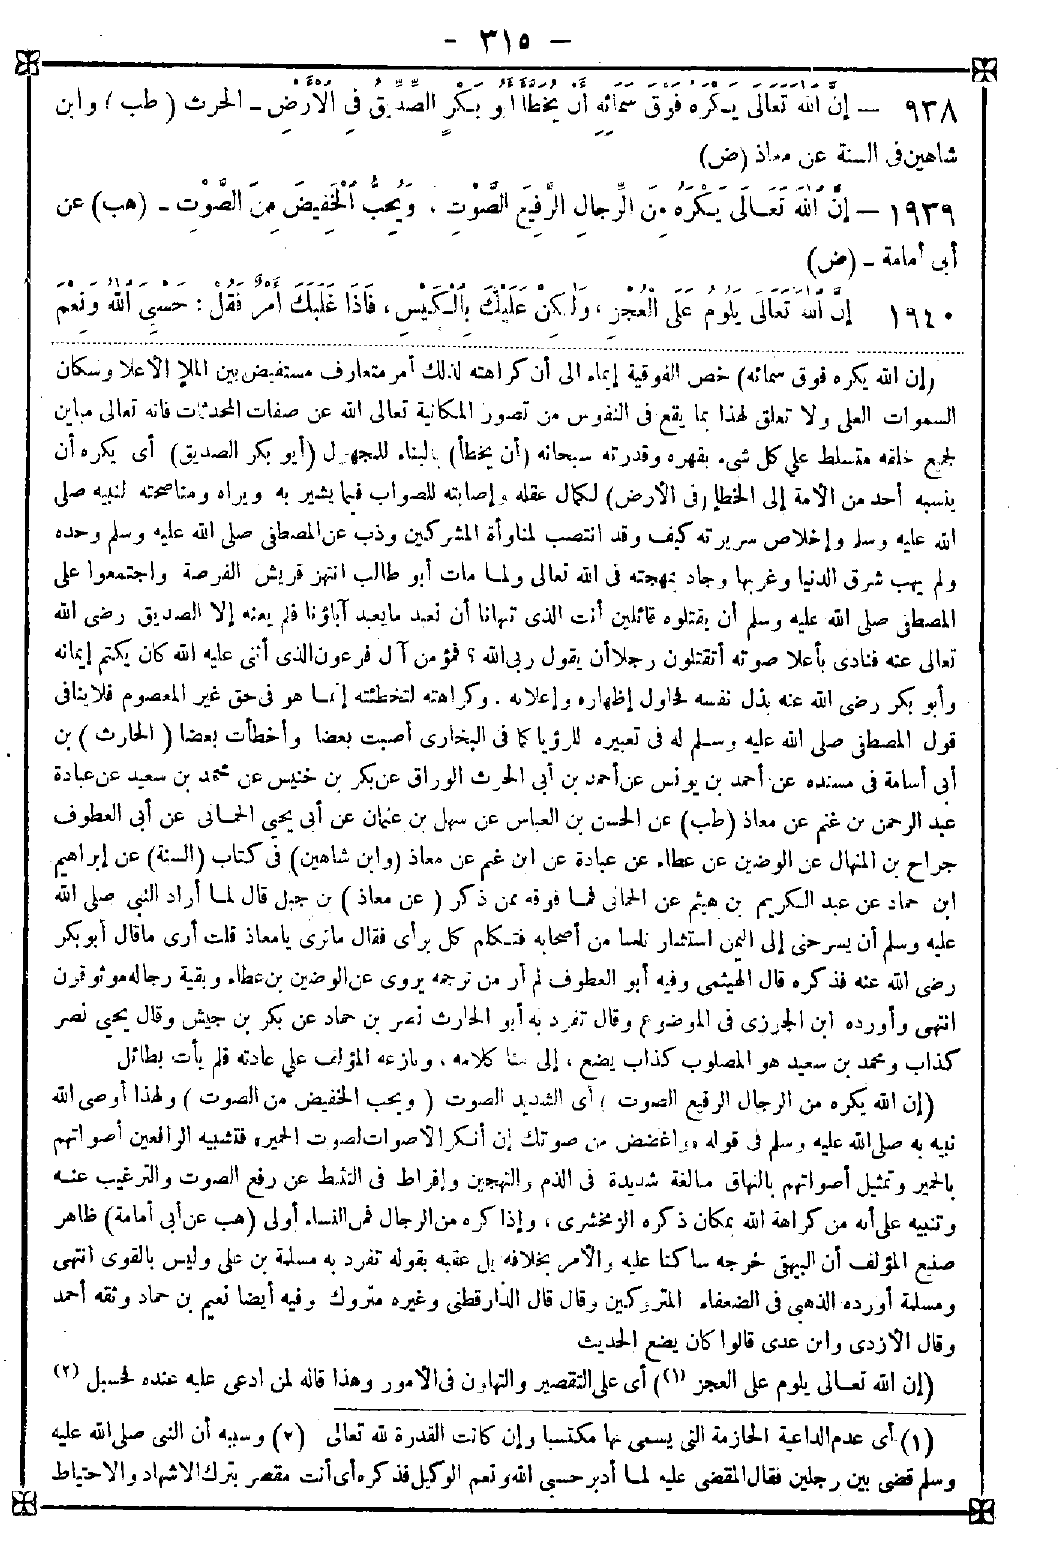 - ٣١٥ -
٩٣٨ - إنَّ اللهَ تعالى يَكْرَهُ فَوْقَ سَمَائِهِ أَنْ يُخَطَّأَ أَبُو بَكْرٍ الصِّدِّيقُ فِي الْأَرْضِ - الحرث (طب) وابن
شاهين في السنة عن معاذ (ض)
١٩٣٩ - إِنَّ اللهَ تَعَالَى يَكْرَهُ مِنَ الرِّجَالِ الرَّفِيعَ الصَّوْتِ ، وَيُحِبُّ الْخَفِيضَ مِنَ الصَّوْتِ - (هب) عن
أبى أمامة - (ض)
١٩٤٠ إِنَّ اللهَ تَعَالَى يَلُومُ عَلَى الْعَجْزِ ، وَلَكِنْ عَلَيْكَ بِالْكَيْسِ ، فَإِذَا غَلَبَكَ أَمْرٌ فَقُلْ : حَسْبِيَ اللهُ وَنِعْمَ
(إن الله يكره فوق سمائه) خص الفوقية إيماء الى أن كراهته لذلك أمر متعارف مستفيض بين الملإ الأعلا وسكان
السموات العلى ولا تعلق لهذا بما يقع فى النفوس من تصور المكانية تعالى الله عن صفات المحدثات فانه تعالى مباين
لجميع خلقه متسلط على كل شىء بقهره وقدرته سبحانه (أن يخطأ) بالبناء للمجهول (أبو بكر الصديق) أى يكره أن
ينسبه أحد من الأمة إلى الخطإ (فى الأرض) لكمال عقله وإصابته للصواب فيما يشير به ويراه ومناصحته لنبيه صلى
الله عليه وسلم وإخلاص سريرته كيف وقد انتصب لمناوأة المشركين وذب عن المصطفى صلى الله عليه وسلم وحده
ولم يهب شرق الدنيا وغربها وجاد بمهجته فى الله تعالى ولما مات أبو طالب انتهز قريش الفرصة واجتمعوا على
المصطفى صلى الله عليه وسلم أن يقتلوه قائلين أنت الذى تنهانا أن نعبد مايعبد آباؤنا فلم يعنه إلا الصديق رضى الله
تعالى عنه فنادى بأعلا صوته أتقتلون رجلا أن يقول ربى الله ؟ فمؤمن آل فرعون الذى أثنى عليه الله كان يكتم إيمانه
وأبو بكر رضى الله عنه بذل نفسه لحاول إظهاره وإعلانه . وكراهته لتخطئته إنما هو فى حق غير المعصوم فلا ينافى
قول المصطفى صلى الله عليه وسلم له فى تعبيره للرؤيا كما فى البخارى أصبت بعضا وأخطأت بعضا (الحارث) بن
أبى أسامة فى مسنده عن أحمد بن يونس عن أحمد بن أبى الحرث الوراق عن بكر بن خنيس عن محمد بن سعيد عن عبادة
عبد الرحمن بن غنم عن معاذ (طب) عن الحسن بن العباس عن سهل بن عثمان عن أبى يحيى الحمانى عن أبى العطوف
جراح بن المنهال عن الوضين عن عطاء عن عبادة عن ابن غنم عن معاذ (وابن شاهين) فى كتاب (السنة) عن إبراهيم
ابن حماد عن عبد الكريم بن هيثم عن الحمانى فما فوقه ممن ذكر (عن معاذ) بن جبل قال لما أراد النبى صلى الله
عليه وسلم أن يسرحنى إلى اليمن استشار ناسا من أصحابه فتكلم كل برأى فقال ماترى يامعاذ قلت أرى ماقال أبوبكر
رضى الله عنه فذكره قال الهيثمى وفيه أبو العطوف لم أر من ترجمه يروى عن الوضين بن عطاء وبقية رجاله موثوقون
انتهى وأورده ابن الجوزى فى الموضوع وقال تفرد به أبو الحارث نصر بن حماد عن بكر بن جيش وقال يحيى نصر
كذاب ومحمد بن سعيد هو المصلوب كذاب يضع ، إلى هنا كلامه ، ونازعه المؤلف على عادته فلم يأت بطائل
(إن الله يكره من الرجال الرفيع الصوت) أى الشديد الصوت (ويحب الخفيض من الصوت) ولهذا أوصى الله
نبيه به صلى الله عليه وسلم فى قوله «واغضض من صوتك إن أنكر الأصوات لصوت الحمير» فتشبيه الرافعين أصواتهم
بالحمير وتمثيل أصواتهم بالنهاق مبالغة شديدة فى الذم والتهجين وإفراط فى التثبط عن رفع الصوت والترغيب عنه
وتنبيه على أنه من كراهة الله بمكان ذكره الزمخشرى ، وإذا كره من الرجال فمن النساء أولى (هب عن أبى أمامة) ظاهر
صنع المؤلف أن البيهقى خرجه ساكتا عليه والأمر بخلافه بل عقبه بقوله تفرد به مسلمة بن على وليس بالقوى انتهى
ومسلمة أورده الذهبى فى الضعفاء المتروكين وقال قال الدارقطنى وغيره متروك وفيه أيضا نعيم بن حماد وثقه أحمد
وقال الأزدى وابن عدى قالوا كان يضع الحديث
(إن الله تعالى يلوم على العجز (١)) أى على التقصير والتهاون فى الأمور وهذا قاله لمن ادعى عليه عنده لحسبل (٢)
(١) أى عدم الداعية الجازمة التى يسمى بها مكتسبا وإن كانت القدرة لله تعالى (٢) وسببه أن النبى صلى الله عليه
وسلم قضى بين رجلين فقال المقضى عليه لما أدبر حسبى الله ونعم الوكيل فذكره أى أنت مقصر بترك الاشهاد والاحتياط